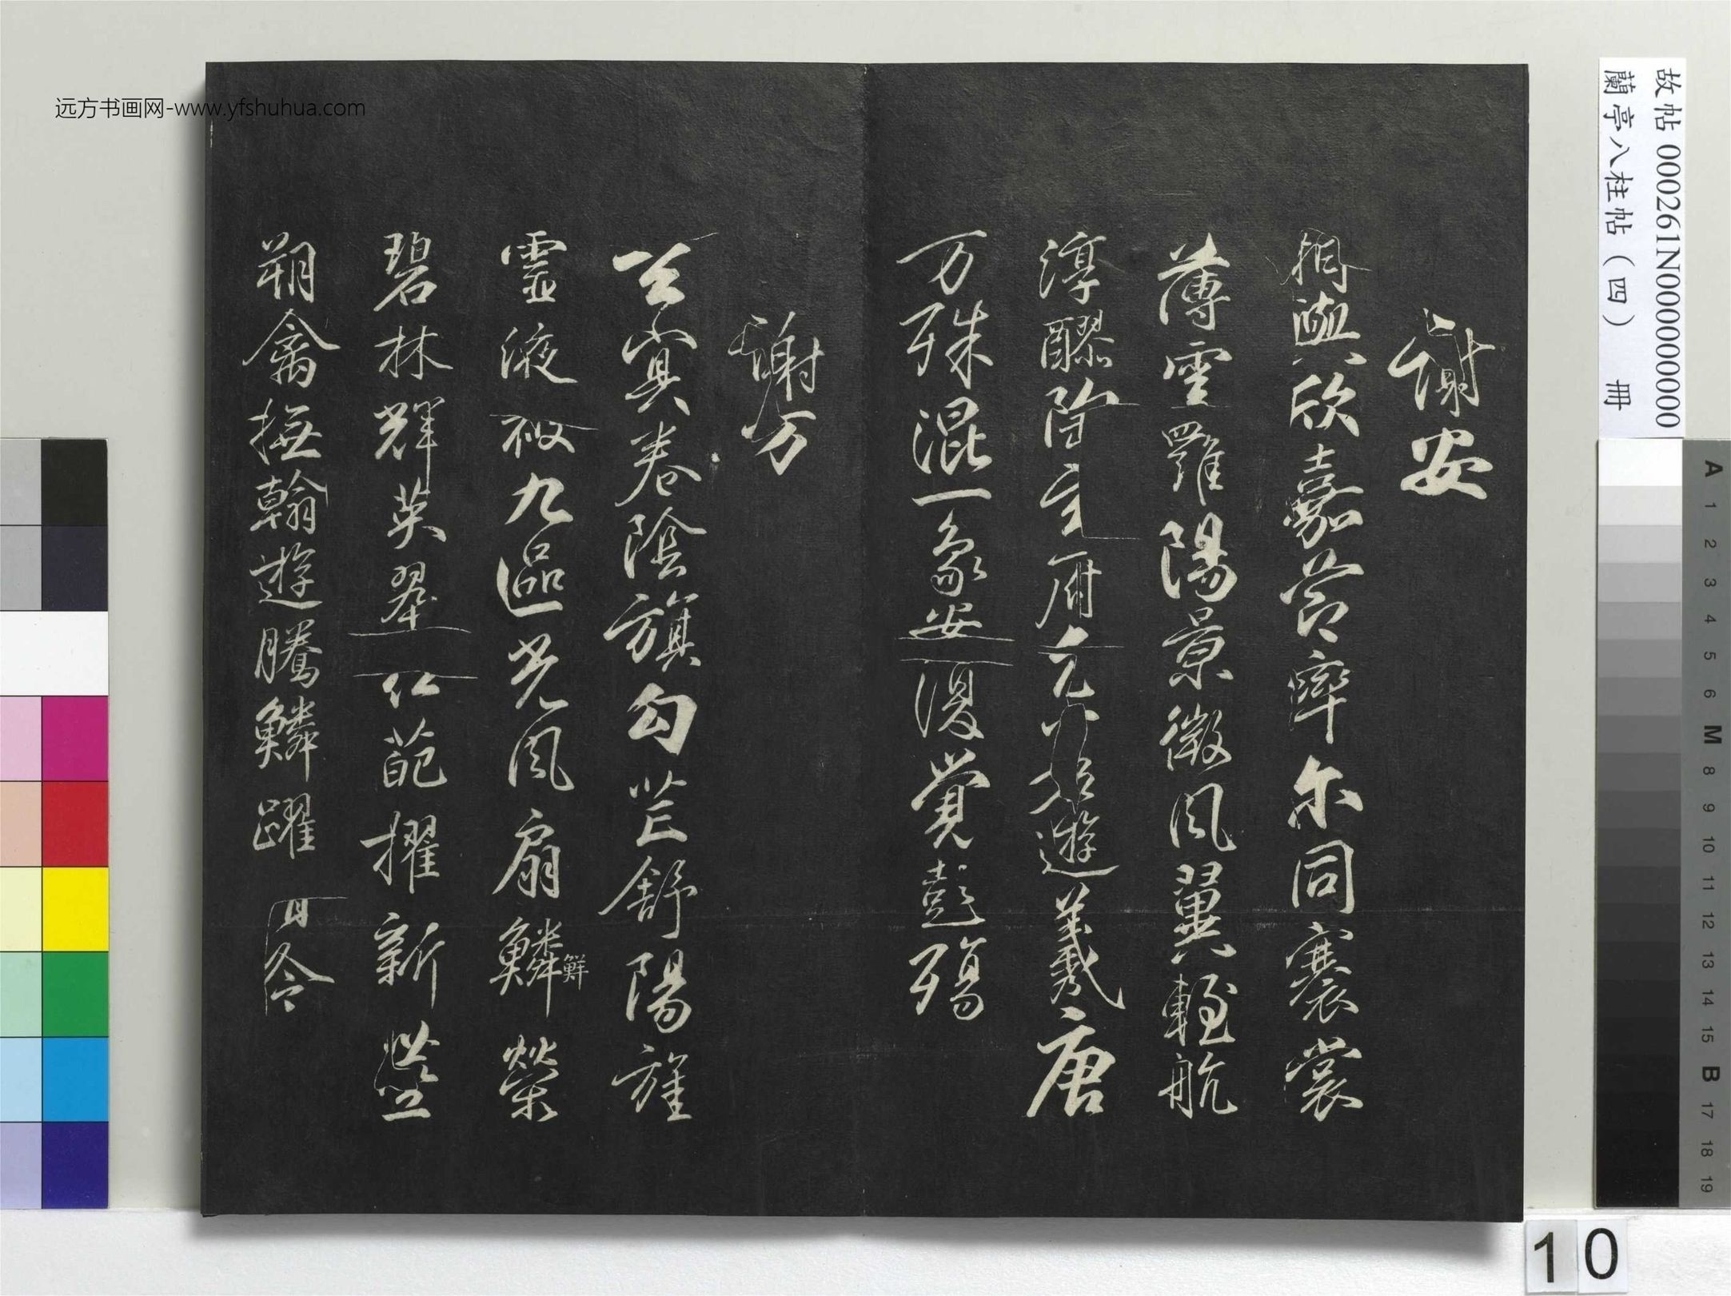 謝安
相與欣嘉節率尔同褰裳
薄雲羅陽景微風翼輕航
淳醪陶玄府兀若遊羲唐
万殊混一象安復覺彭殤
謝万
玄冥卷陰旗勾芒舒陽旌
靈液被九區光風扇鱗鮮榮
碧林輝英翠紅葩擢新莖
翔禽撫翰遊騰鱗躍清泠
故帖 000261N000000000
蘭亭八柱帖（四） 冊
远方书画网-www.yfshuhua.com
A 1 2 3 4 5 6 M 8 9 10 11 12 13 14 15 B 17 18 19
10